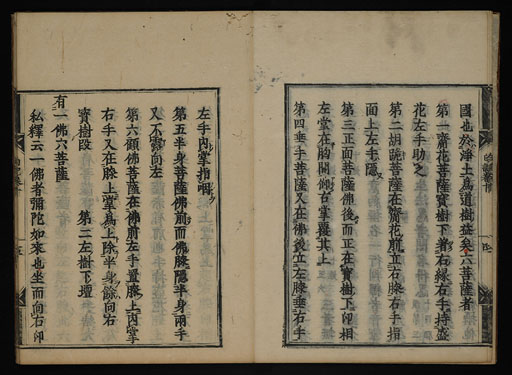 國也於淨土爲道樹益矣六菩薩者
第一齎花菩薩寶樹下著右緣左手持盛
花左手助之
第二胡跪菩薩在齎花前立右膝右手指
面上左手隱
第三正面菩薩佛後而正在寶樹下印相
左掌在胸開仰右掌覆其上
第四垂手菩薩又在佛後立左膝垂右手
左手内掌指咽
第五半身菩薩佛前而佛膝隱半身兩手
又不審向左
第六顧佛菩薩在佛前左手置膝上内掌
右手又在膝上掌爲上除半身餘向右
寶樹段 第二左樹下壇
有一佛六菩薩
私釋云一佛者彌陀如來也坐而向右印